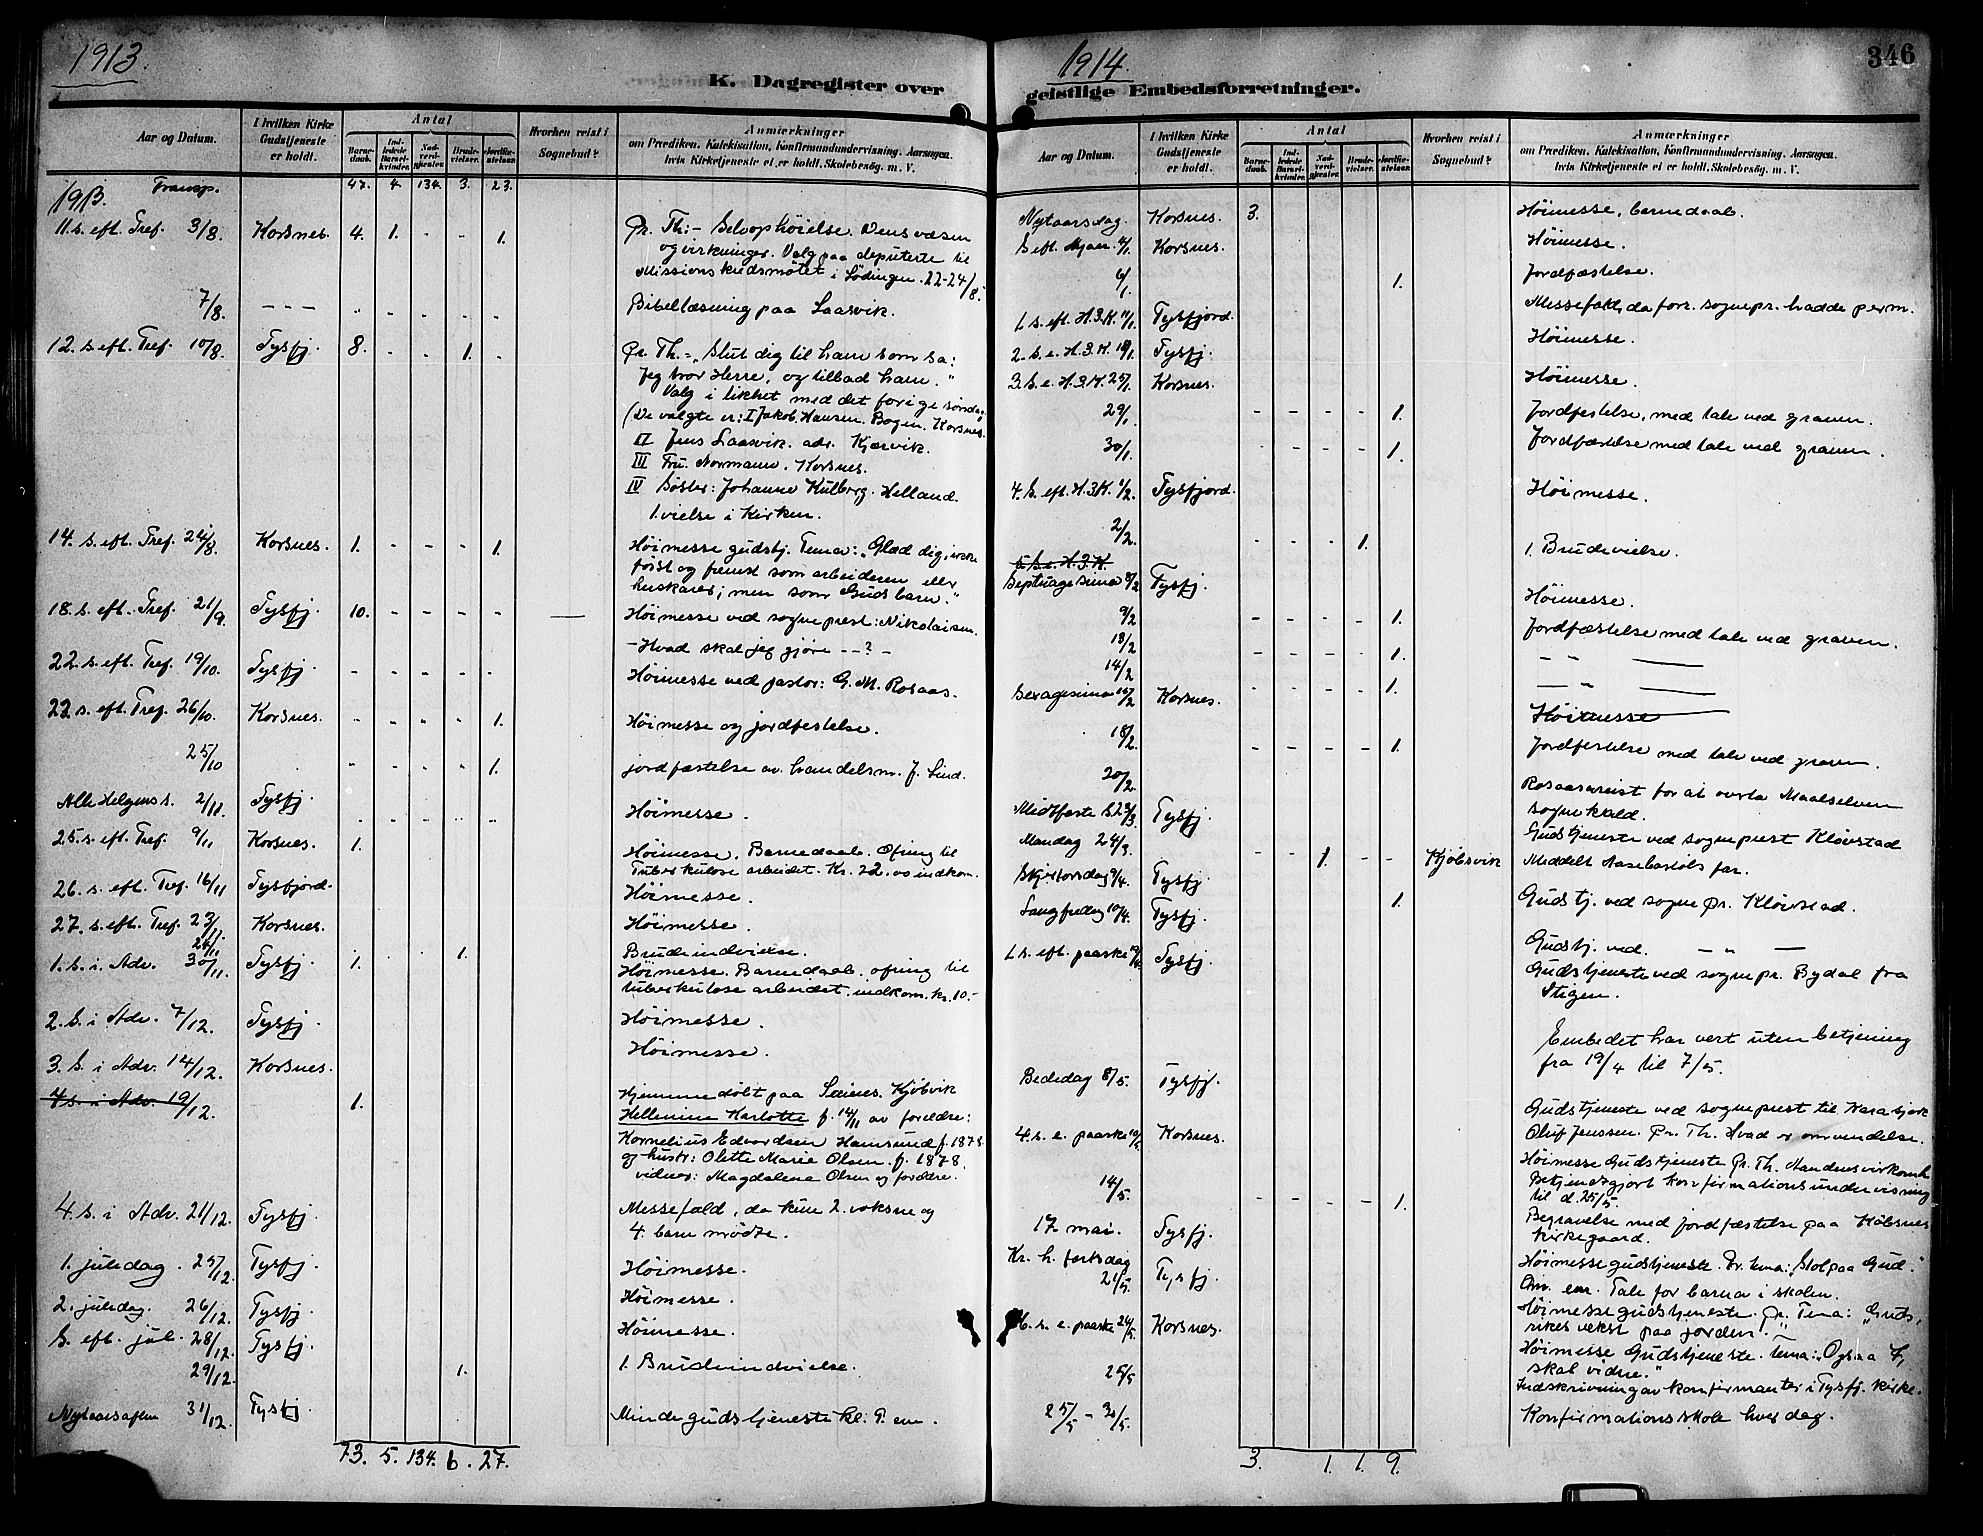 1913.
K. Dagregister over
Aar og Datum. I hvilken Kirke Gudstjeneste er holdt. Antal Barnedaab. Indledede Barselkvinder. Nadverdgjester. Brudevielser. Jordfæstelser. Hvorhen reist i Sognebud? Anmærkninger om Prædiken, Katekisation, Konfirmandundervisning, Aarsagen, hvis Kirketjeneste ei er holdt, Skolebesøg. m. V.
1913. Transp. 47. 4. 134. 3. 23.
11. s. eft. Tref. 3/8. Korsnes. 4. 1. - - 1. Pr. Th:- Selvophöielse. Dens væsen
og virkninger. Valg paa deputerte til
Missions kredsmötet i Lödingen. 22-24/8.
7/8. - - - " - - - - Bibellæsning paa Laasvik.
12. s. eft. Tref. 10/8. Tysfj. 8. - - 1. - Pr. Th.- "Slut dig til ham som sa:
Jeg tror Herre, og tilbad ham."
Valg i likhet med det forige søndag.
(De valgte er: I Jakob Hansen. Bogen. Korsnes.
II Jens Laasvik. adr. Kjærvik.
III Fru. Normann. Korsnes.
IV Søster: Johanne Kulberg. Helland.
1. vielse i Kirken.
14. s. eft. Tref. 24/8. Korsnes. 1. - - - 1. Höimesse gudstj. Tema: "Glæd dig, ikke
først og fremst som arbeideren eller
huskarer; men som Guds barn."
18. s. eft. Tref. 21/9. Tysfj. 10. - - - - Höimesse ved sogneprest: Nikolaisen.
- Hvad skal jeg gjöre - - ? -
22. s. eft. Tref. 19/10. Tysfj. - - - - - Höimesse ved pastor: G. M. Rosaas.
22 s. eft. Tref. 26/10. Korsnes. - - - - 1. Höimesse og jordfestelse.
25/10 - - - - 1. jordfæstelse av handelsm. J. Lind.
Alle Helgens s. 2/11. Tysfj. Höimesse.
25. s. eft. Tref. 9/11 Korsnes. 1. Höimesse, Barnedaab. Ofring til
Tuberkulose arbeidet. Kr. 22.00 indkom.
26. s. eft. Tref. 16/11 Tysfjord. Höimesse.
27. s. eft. Tref. 23/11. Korsnes. Höimesse.
28/11 1. Brudeindvielse.
1. s. i. Adv. 30/11. Tysfj. 1. Höimesse. Barnedaab. ofring til
tuberkulose arbeidet. indkom. kr. 10.-
2. S. i Adv. 7/12. Tysfj. Höimesse.
3. S. i Adv. 14/12. Korsnes. Höimesse.
4 s. i Adv. 19/12. 1. Hjemmedöbt paa Kjöbvik
Hellenine Karlotte f. 14/11 av foreldre:
Kornelius Edvardsen Hamsund f. 1878.
og hustr: Olette Marie Olsen. f. 1878.
vidner: Magdalena Olsen og foreldre.
4. s. i Adv. 21/12. Tysfj. Messefald, da kun 2. voksne og
4. barn mödte.
1. juledag. 25/12. Tysfj. Höimesse.
2. juledag. 26/12. Tysfj. Höimesse.
S. eft. jul. 28/12. Tysfj. Höimesse.
29/12. 1. 1. Brudeindvielse.
Nytaarsaften 31/12. Tysfj. Mindegudstjeneste kl. 9. em.
73. 5. 134. 6. 27.
1914. 346
geistlige Embedsforretninger.
Aar og Datum. I hvilken Kirke Gudstjeneste er holdt. Antal Barnedaab. Indledede Barselkvinder. Nadverdgjester. Brudevielser. Jordfæstelser. Hvorhen reist i Sognebud? Anmærkninger om Prædiken, Katekisation, Konfirmandundervisning, Aarsagen, hvis Kirketjeneste ei er holdt, Skolebesøg. m. V.
Nytaarsdag. Korsnes. 3. Höimesse, barnedaab.
S. eft. Nyaar. 4/1. Korsnes. Höimesse.
6/1. 1. Jordfæstelse.
1. s. eft. H.3.K. 11/1. Tysfjord. Messefald, da fors. sognepr. hadde perm.
2. S. e. H.3.K. 18/1. Tysfj. Höimesse.
3. S. e. H.3.K. 25/1. Korsnes. Höimesse.
29/1. - - - - 1. Jordfestelse, med tale ved graven.
30/1. - - - - 1. Jordfæstelse med tale ved graven.
4. S. eft. H.3K. 1/2. Tysfjord. Höimesse.
2/2. - - - 1. 1. Brudevielse.
5 S. e. H.3.K.
Septuagesima 8/2 Tysfj. Höimesse.
9/2 - - - - 1. Jordfæstelse med tale ved graven.
13/2 - - - - 1. - " -
14/2 - - - - 1. - " -
Sexagesima 15/2 Korsnes. Höimesse
18/2. - - - - 1. Jordfestelse med tale ved graven.
20/2. Rosaas avreist for at overta Maalselven
sognekald.
Midtfaste S. Tysfj. Gudstjeneste ved sogneprest Klövstad
Mandag 24/3. 1. - - Kjöbsvik Meddelt
Skjærtorsdag 9/4. Tysfj. 1. Gudstj. ved sogne pr. Klövstad.
Langfredag 10/4. Tysfj. Gudstj. ved. - " -
1. s. eft. paaske 19/4. Tysfj. Gudstjeneste ved sognepr. Bydal fra
Stigen.
Embedet har vert uten betjening
fra 19/4 til 7/5.
Bededag 8/5. Tysfj. Gudstjeneste ved sogneprest til Karasjok
Oluf Jenssen. Pr. Th. Hvad er omvendelse.
4. s. e. paaske 10/5. Korsnes. Höimesse Gudstjeneste Pr. Th. Aandens virksomh.
Bekjendtgjort konfirmationsundervisning
til d. 25/5.
14/5. - - - - 1. Begravelse med jordfæstelse paa Kobsnes
kirkegaard.
17. mai. Tysfj. Höimessegudstjeneste. Pr. tema: "Stol paa Gud."
em. Tale for barna i skolen.
Kr. h. fartsdag 21/5. Tysfj. Höimessegudstjeneste. Pr. Tema: "Guds
rikes vekst paa jorden."
6. s. e. paaske 24/5. Korsnes. Höimesse Gudstjeneste. Tema: "Ogsaa I,
skal vidne."
25/5 Indskrivning av konfirmanter i Tysfj. kirke.
25/5 - 30/5. Konfirmationsskole hver dag.
3. 1. 1. 9.